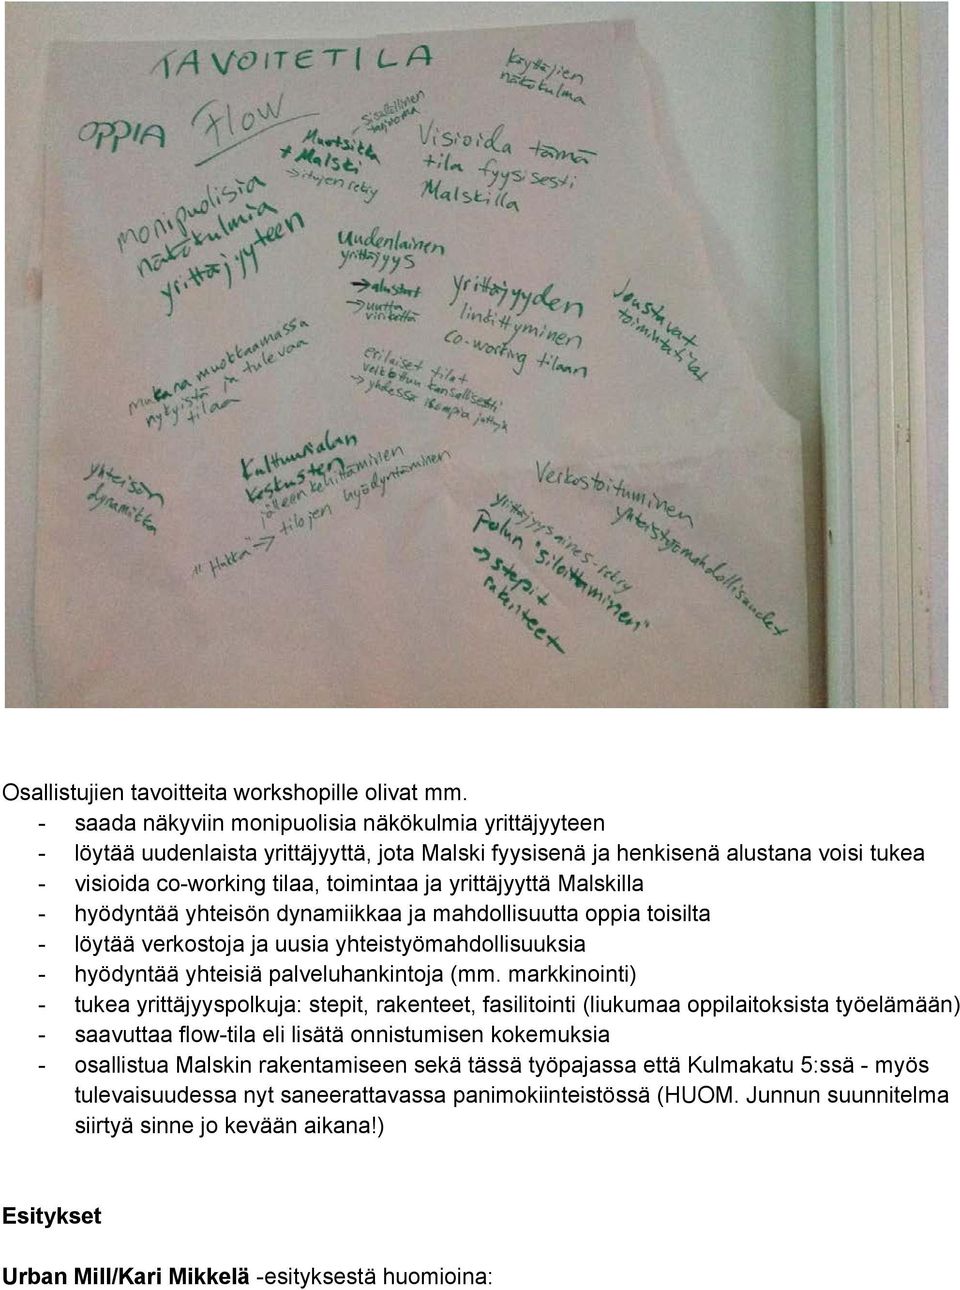 TAVOITETILA
Käyttäjien
näkökulma
OPPIA
Flow
- sisällöllinen
Muotsikka
+ Malski
Visioida tämä
tila fyysisesti
Malskilla
monipuolisia
näkökulmia
yrittäjyyteen
Uudenlainen
yrittäjyys
→ alustat
→ uutta
yrittäjyyden
linkittyminen
co-working tilaan
Joustavat
toimintatilat
mukana muokkaamassa
nykyistä ja tulevaa
tilaa
erilaiset tilat
verkottuu kansallisesti
→ yhdessä isompia juttuja
yhteisön
dynamiikka
Kulttuurialan
keskusten
jälleen kehittäminen
"Hukka" → tilojen hyödyntäminen
Verkostoituminen
yhteistyömahdollisuudet
yrittäjyysaines-rekry
Polun "siloittaminen"
→ stepit
rakenteet
Osallistujien tavoitteita workshopille olivat mm.
- saada näkyviin monipuolisia näkökulmia yrittäjyyteen
- löytää uudenlaista yrittäjyyttä, jota Malski fyysisenä ja henkisenä alustana voisi tukea
- visioida co-working tilaa, toimintaa ja yrittäjyyttä Malskilla
- hyödyntää yhteisön dynamiikkaa ja mahdollisuutta oppia toisilta
- löytää verkostoja ja uusia yhteistyömahdollisuuksia
- hyödyntää yhteisiä palveluhankintoja (mm. markkinointi)
- tukea yrittäjyyspolkuja: stepit, rakenteet, fasilitointi (liukumaa oppilaitoksista työelämään)
- saavuttaa flow-tila eli lisätä onnistumisen kokemuksia
- osallistua Malskin rakentamiseen sekä tässä työpajassa että Kulmakatu 5:ssä - myös
tulevaisuudessa nyt saneerattavassa panimokiinteistössä (HUOM. Junnun suunnitelma
siirtyä sinne jo kevään aikana!)
Esitykset
Urban Mill/Kari Mikkelä -esityksestä huomioina: